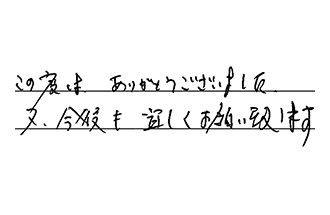 この度は ありがとうございました
又、今後も 宜しくお願い致します